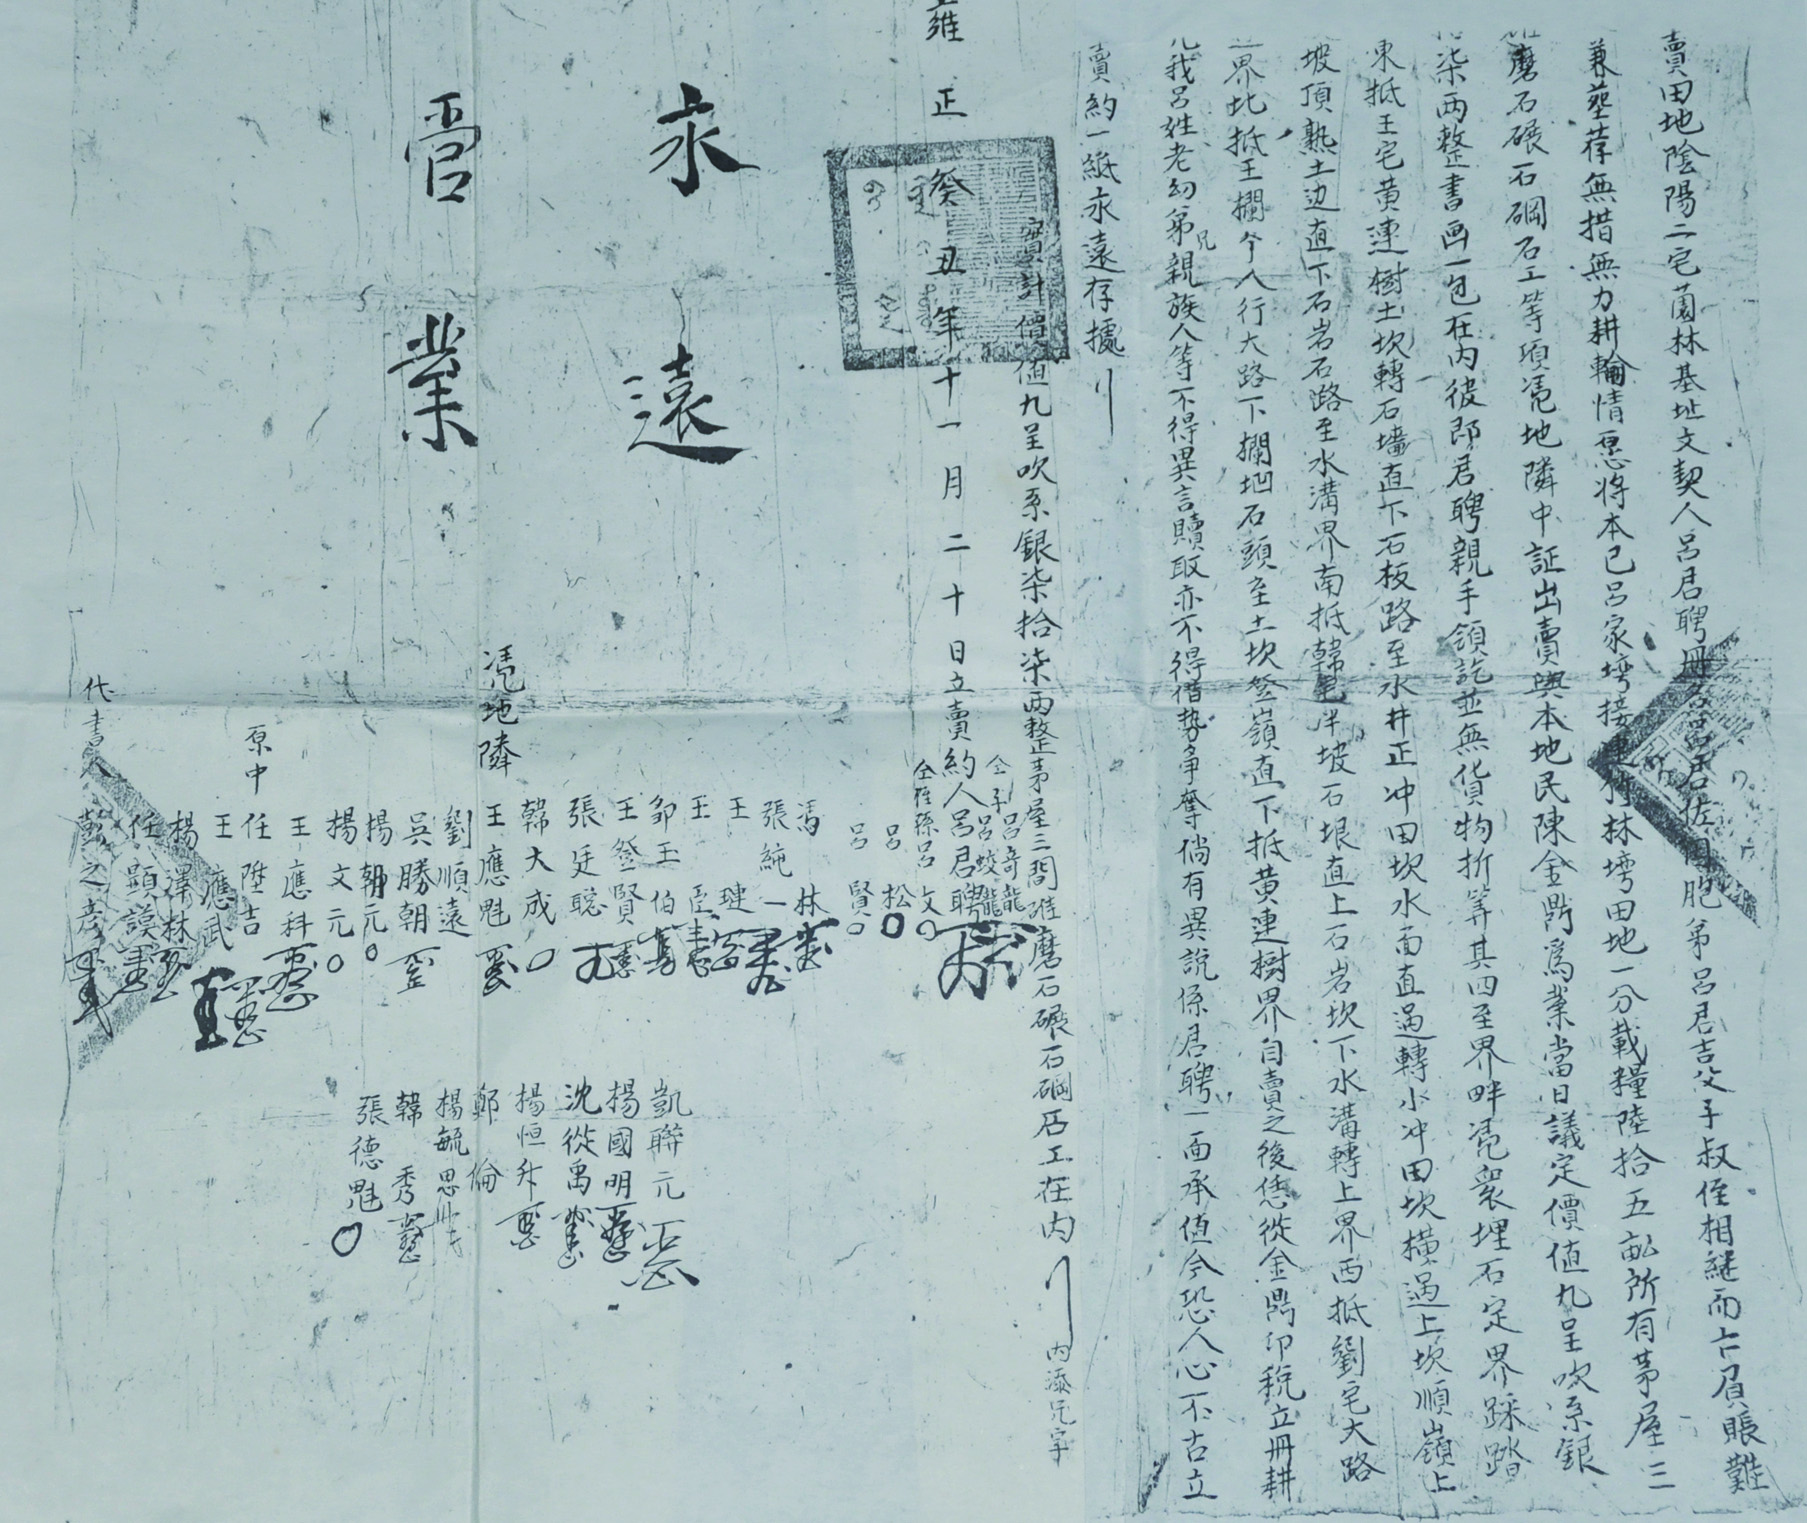 賣田地陰陽二宅薗林基址文契人呂君聘冊名呂君佐因胞弟呂君吉父子叔侄相繼而亡負賬難
兼塟荐無措無力耕輪情愿将本已呂家塆接連竹林塆田地一分載糧陸拾五畝所有茅屋三
磨石碾石磵石工等項凴地隣中証出賣與本地民陳金鼎爲業當日議定價值九呈吹系銀
柒两整書画一包在内彼即君聘親手領訖並無貨物折筭其四至界畔凴衆埋石定界踩踏
東抵王宅黄連樹土坎轉石墻直下石板路至水井正冲田坎水面直過轉小冲田坎横過上坎順嶺上
坡頂熟土边直下石岩石路至水溝界南抵韓宅半坡石垠直上石岩坎下水溝轉上界西抵劉宅大路
界北抵王攔今人行大路下攔凼石頭至土坎登嶺直下抵黄連樹界自賣之後恁從金鼎印税立冊耕
我呂姓老幼弟兄親族人等不得異言贖取亦不得借势争奪倘有異說係君聘一面承值今恐人心不古立
賣約一紙永遠存據
實計價值九呈吹系銀柒拾柒两整茅屋三間碓磨石碾石磵石工在内
内添兄字
雍正癸丑年十一月二十日立賣約人呂君聘
仝子呂奇龍
呂蛟龍
仝侄孫呂文
呂松
呂賢
永遠
管業
凴地隣
馮林
張純一
王璉
王臣
邹玉伯
王登賢
張廷聪
韓大成
王應魁
劉順遠
吳勝朝
揚朝元
揚文元
王應科
原中
任陞吉
王應武
楊澤林
任顯謨
代書人
彭之彦
凱聯元
楊國明
沈從禹
楊恒升
鄭倫
楊毓思
韓秀
張德魁